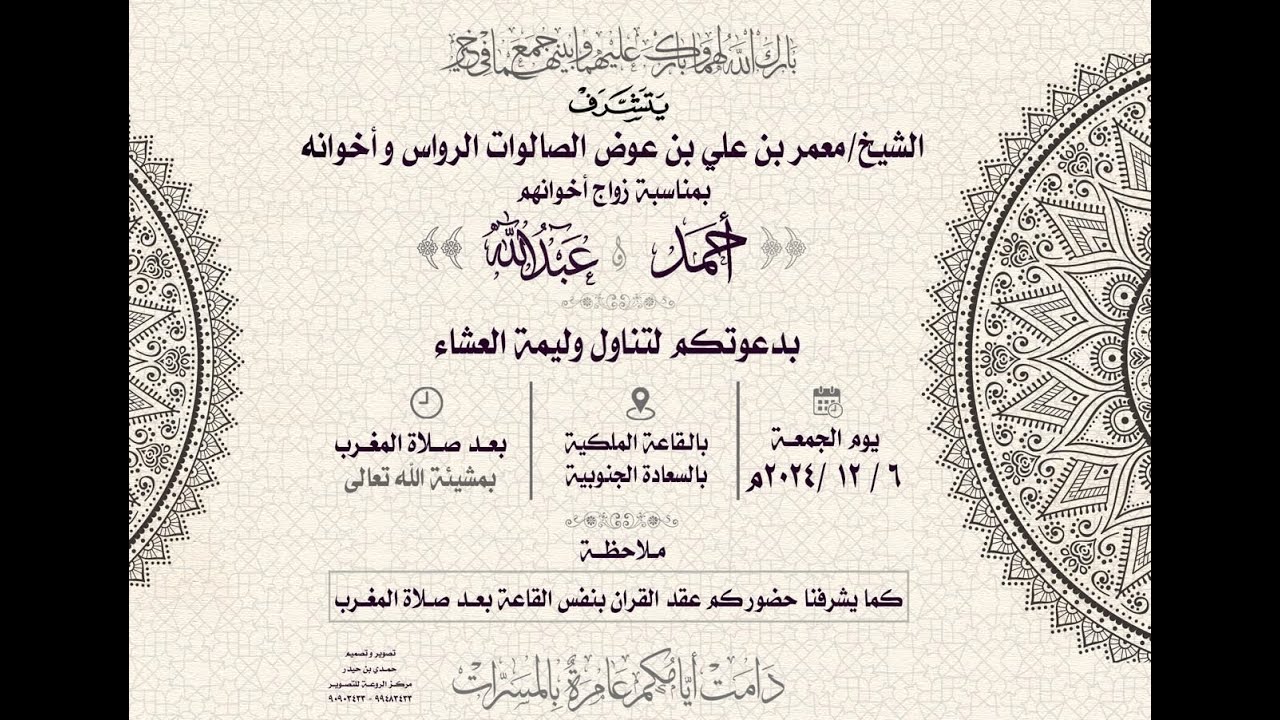 بارك الله لهما وبارك عليهما وجمع بينهما في خير
يتشرف
الشيخ/معمر بن علي بن عوض الصالوات الرواس وأخوانه
بمناسبة زواج أخوانهم
أحمد و عبدالله
بدعوتكم لتناول وليمة العشاء
يوم الجمعة
٦ / ١٢ /٢٠٢٤م
بالقاعة الملكية
بالسعادة الجنوبية
بعد صلاة المغرب
بمشيئة الله تعالى
ملاحظة
كما يشرفنا حضوركم عقد القران بنفس القاعة بعد صلاة المغرب
دامت أيامكم عامرة بالمسرات
تصوير وتصميم
حمدي بن حيدر
مركز الروعة للتصوير
٩٩٤٨٣٤٣٣ - ٩٠٩٠٣٤٣٣